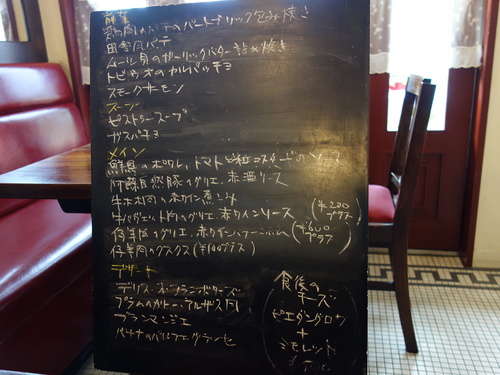 前菜
のパートブリック包み焼き
田舎風パテ
ムール貝のガーリックバター詰め焼き
トビウオのカルパッチョ
スモークサーモン
スープ
ピストゥースープ
ガスパチョ
メイン
鮮魚のポワレ、トマトと粒マスタードのソース
阿蘇自然豚のグリエ、赤酒ソース
牛ホホ肉の赤ワイン煮込み
牛バヴェットのグリエ、赤ワインソース
(¥200プラス)
仔羊のグリエ、赤ワイン
(¥600プラス)
仔羊肉のクスクス(¥100プラス)
デザート
デリス・オ・ブラン
プラムのガトー・アルザス風
ブランマンジェ
バナナのパルフェグラッセ
食後の
チーズ
ピエダングロワ
+
ミモレット